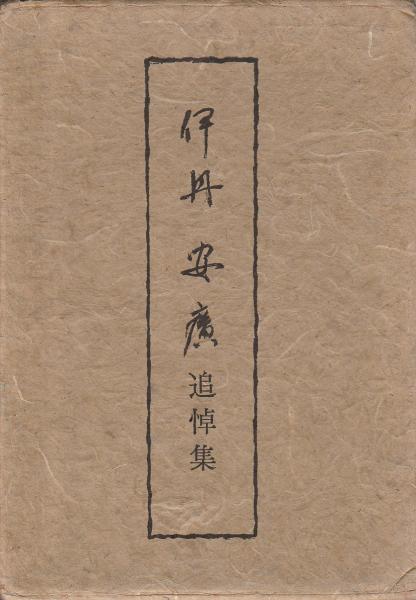 伊丹 安廣 追悼集